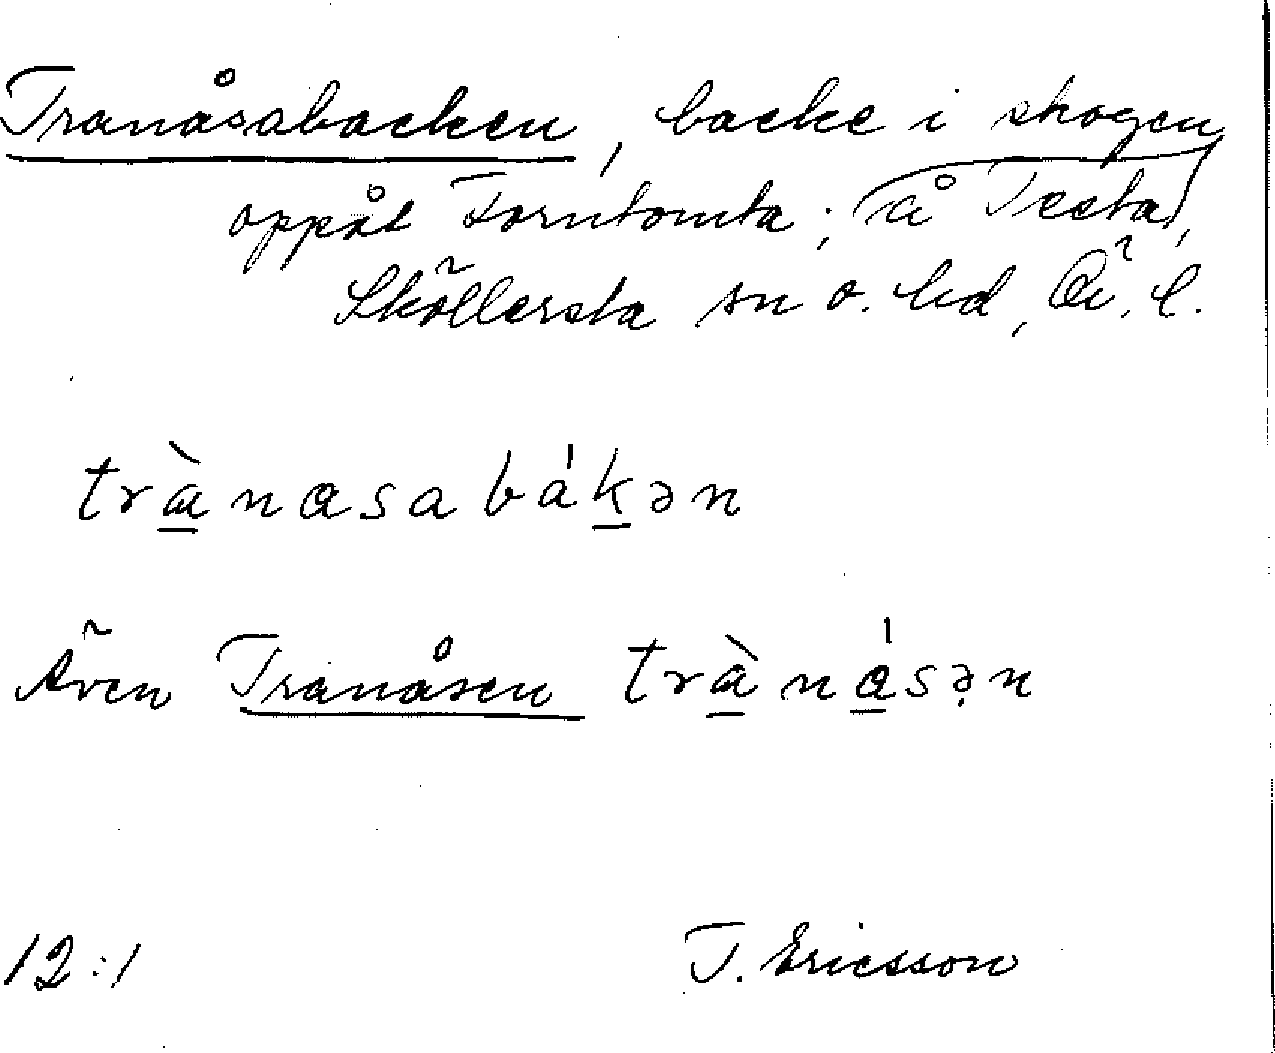 Tranåsabacken, backe i skogen
oppåt Torntomta; (å Testa),
Sköllersta sn o. hd, Ö. l.
trànasabákən
Även Tranåsen trànásən
12:1 T. Ericsson